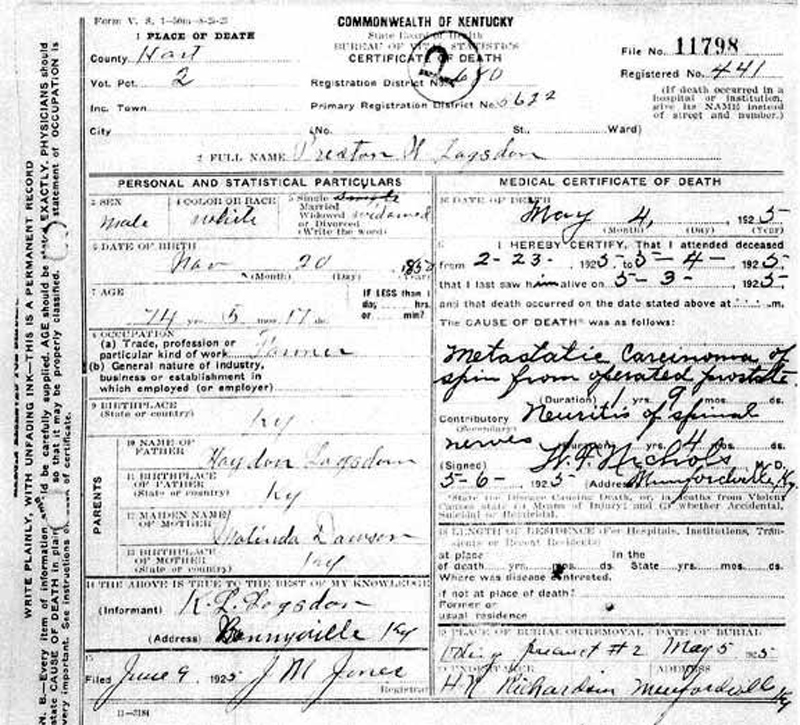 Form V. S. 1-50m-8-25-25
COMMONWEALTH OF KENTUCKY
State Board of Health
BUREAU OF VITAL STATISTICS
CERTIFICATE OF DEATH
1 PLACE OF DEATH
County Hart
Vot. Pct. 2
Inc. Town
City (No. St., Ward)
Registration District No. 680
Primary Registration District No. 5622
File No. 11798
Registered No. 441
(If death occurred in a
hospital or institution,
give its NAME instead
of street and number.)
2 FULL NAME Preston H Logsdon
PERSONAL AND STATISTICAL PARTICULARS
3 SEX
male
4 COLOR OR RACE
white
5 Single
Married
Widowed widowed
or Divorced
(Write the word)
6 DATE OF BIRTH
Nov 20 1850
(Month) (Day) (Year)
7 AGE
74 yrs. 5 mos. 17 ds.
IF LESS than 1
day, hrs.
or min?
8 OCCUPATION
(a) Trade, profession or
particular kind of work Farmer
(b) General nature of industry,
business or establishment in
which employed (or employer)
9 BIRTHPLACE
(State or country) Ky
PARENTS
10 NAME OF
FATHER Haydon Logsdon
11 BIRTHPLACE
OF FATHER
(State or country) Ky
12 MAIDEN NAME
OF MOTHER Malinda Dawson
13 BIRTHPLACE
OF MOTHER
(State or country) Ky
14 THE ABOVE IS TRUE TO THE BEST OF MY KNOWLEDGE
(Informant) K. L. Logsdon
(Address) Bonnyville Ky
15
Filed June 9 1925 J M Jones
Registrar
11-3184
MEDICAL CERTIFICATE OF DEATH
16 DATE OF DEATH
May 4, 1925
(Month) (Day) (Year)
I HEREBY CERTIFY, That I attended deceased
from 2-23-, 1925 to 5-4-, 1925.
that I last saw him alive on 5-3-, 1925.
and that death occurred on the date stated above at m.
The CAUSE OF DEATH* was as follows:
Metastatic Carcinoma of
spin from operated prostate
(Duration) 1 yrs. 9 mos. ds.
Contributory Neuritis of spinal
(Secondary)
nerves (Duration) yrs. 4 mos. ds.
(Signed) H. F. Nichols M. D.
5-6-, 1925 (Address) Munfordville, Ky.
*State the Disease Causing Death, or, in deaths from Violent
Causes state (1) Means of Injury; and (2) whether Accidental,
Suicidal or Homicidal.
18 LENGTH OF RESIDENCE (For Hospitals, Institutions, Tran-
sients or Recent Residents)
at place In the
of death yrs. mos. ds. State yrs. mos. ds.
Where was disease contracted.
if not at place of death?
Former or
usual residence
19 PLACE OF BURIAL OR REMOVAL
precinct #2
DATE OF BURIAL
May 5 1925
20 UNDERTAKER
H N Richardson
ADDRESS
Munfordville Ky
WRITE PLAINLY, WITH UNFADING INK—THIS IS A PERMANENT RECORD
N. B.—Every item of information should be carefully supplied. AGE should be stated EXACTLY. PHYSICIANS should
state CAUSE OF DEATH in plain so that it may be properly classified. statement of OCCUPATION is
very important. See instructions of certificate.